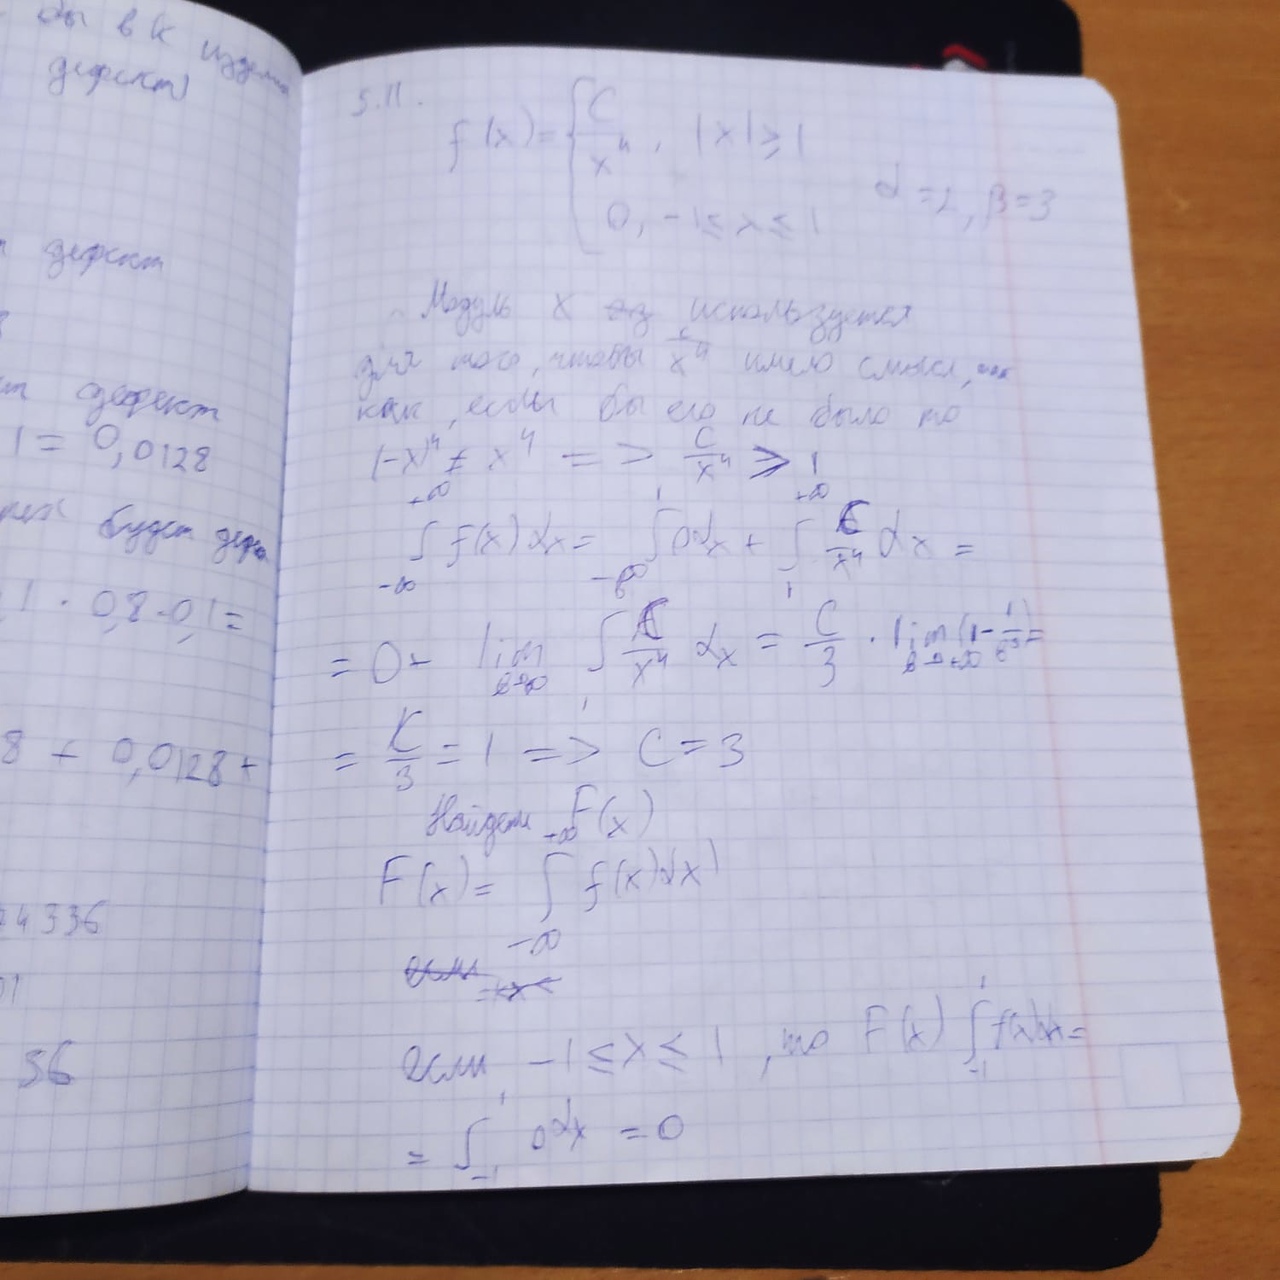 бы в к издели
дефект
дефект
дефект
1 = 0,0128
будет дефек
1 · 0,8 · 0,1 =
8 + 0,0128 +
4336
01
56
5.11.
f(x) = { C/x⁴, |x| ≥ 1
0, -1 ≤ x ≤ 1
α = 2, β = 3
Модуль x используется
для того, чтобы c/x⁴ имело смысл, так
как, если бы его не было то
(-x)⁴ ≠ x⁴ => C/x⁴ ≥ 1
∫_{-∞}^{+∞} f(x) dx = ∫_{-∞}^{1} 0dx + ∫_{1}^{+∞} C/x⁴ dx =
= 0 + lim_{b→∞} ∫_{1}^{b} C/x⁴ dx = C/3 · lim_{b→+∞} (1 - 1/b³) =
= C/3 = 1 => C = 3
Найдем F(x)
F(x) = ∫_{-∞}^{+∞} f(x)dx)
если -1 ≤ x ≤ 1, то F(x) ∫_{-1}^{1} f(x)dx =
= ∫_{-1}^{1} 0dx = 0